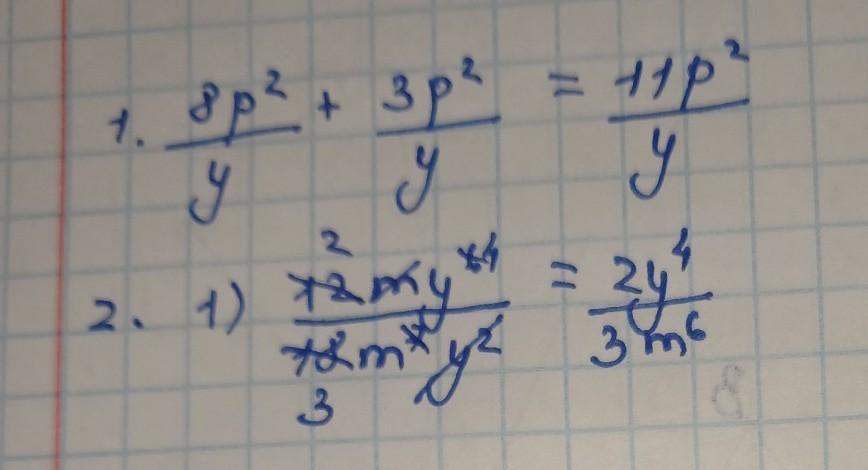 1. 8p²/y + 3p²/y = 11p²/y
2. 1) 12my⁴/18m⁷y² = 2y⁴/3m⁶